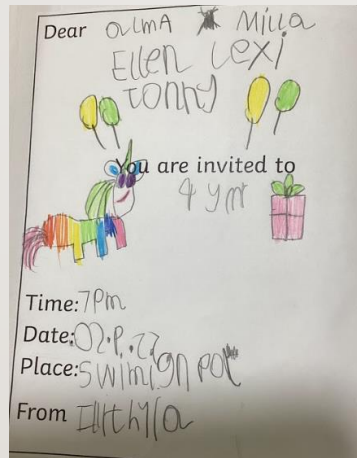 Dear alma Milla
Ellen Lexi
Tonny
You are invited to
4 ym
Time: 7Pm
Date:
Place: swimign
From